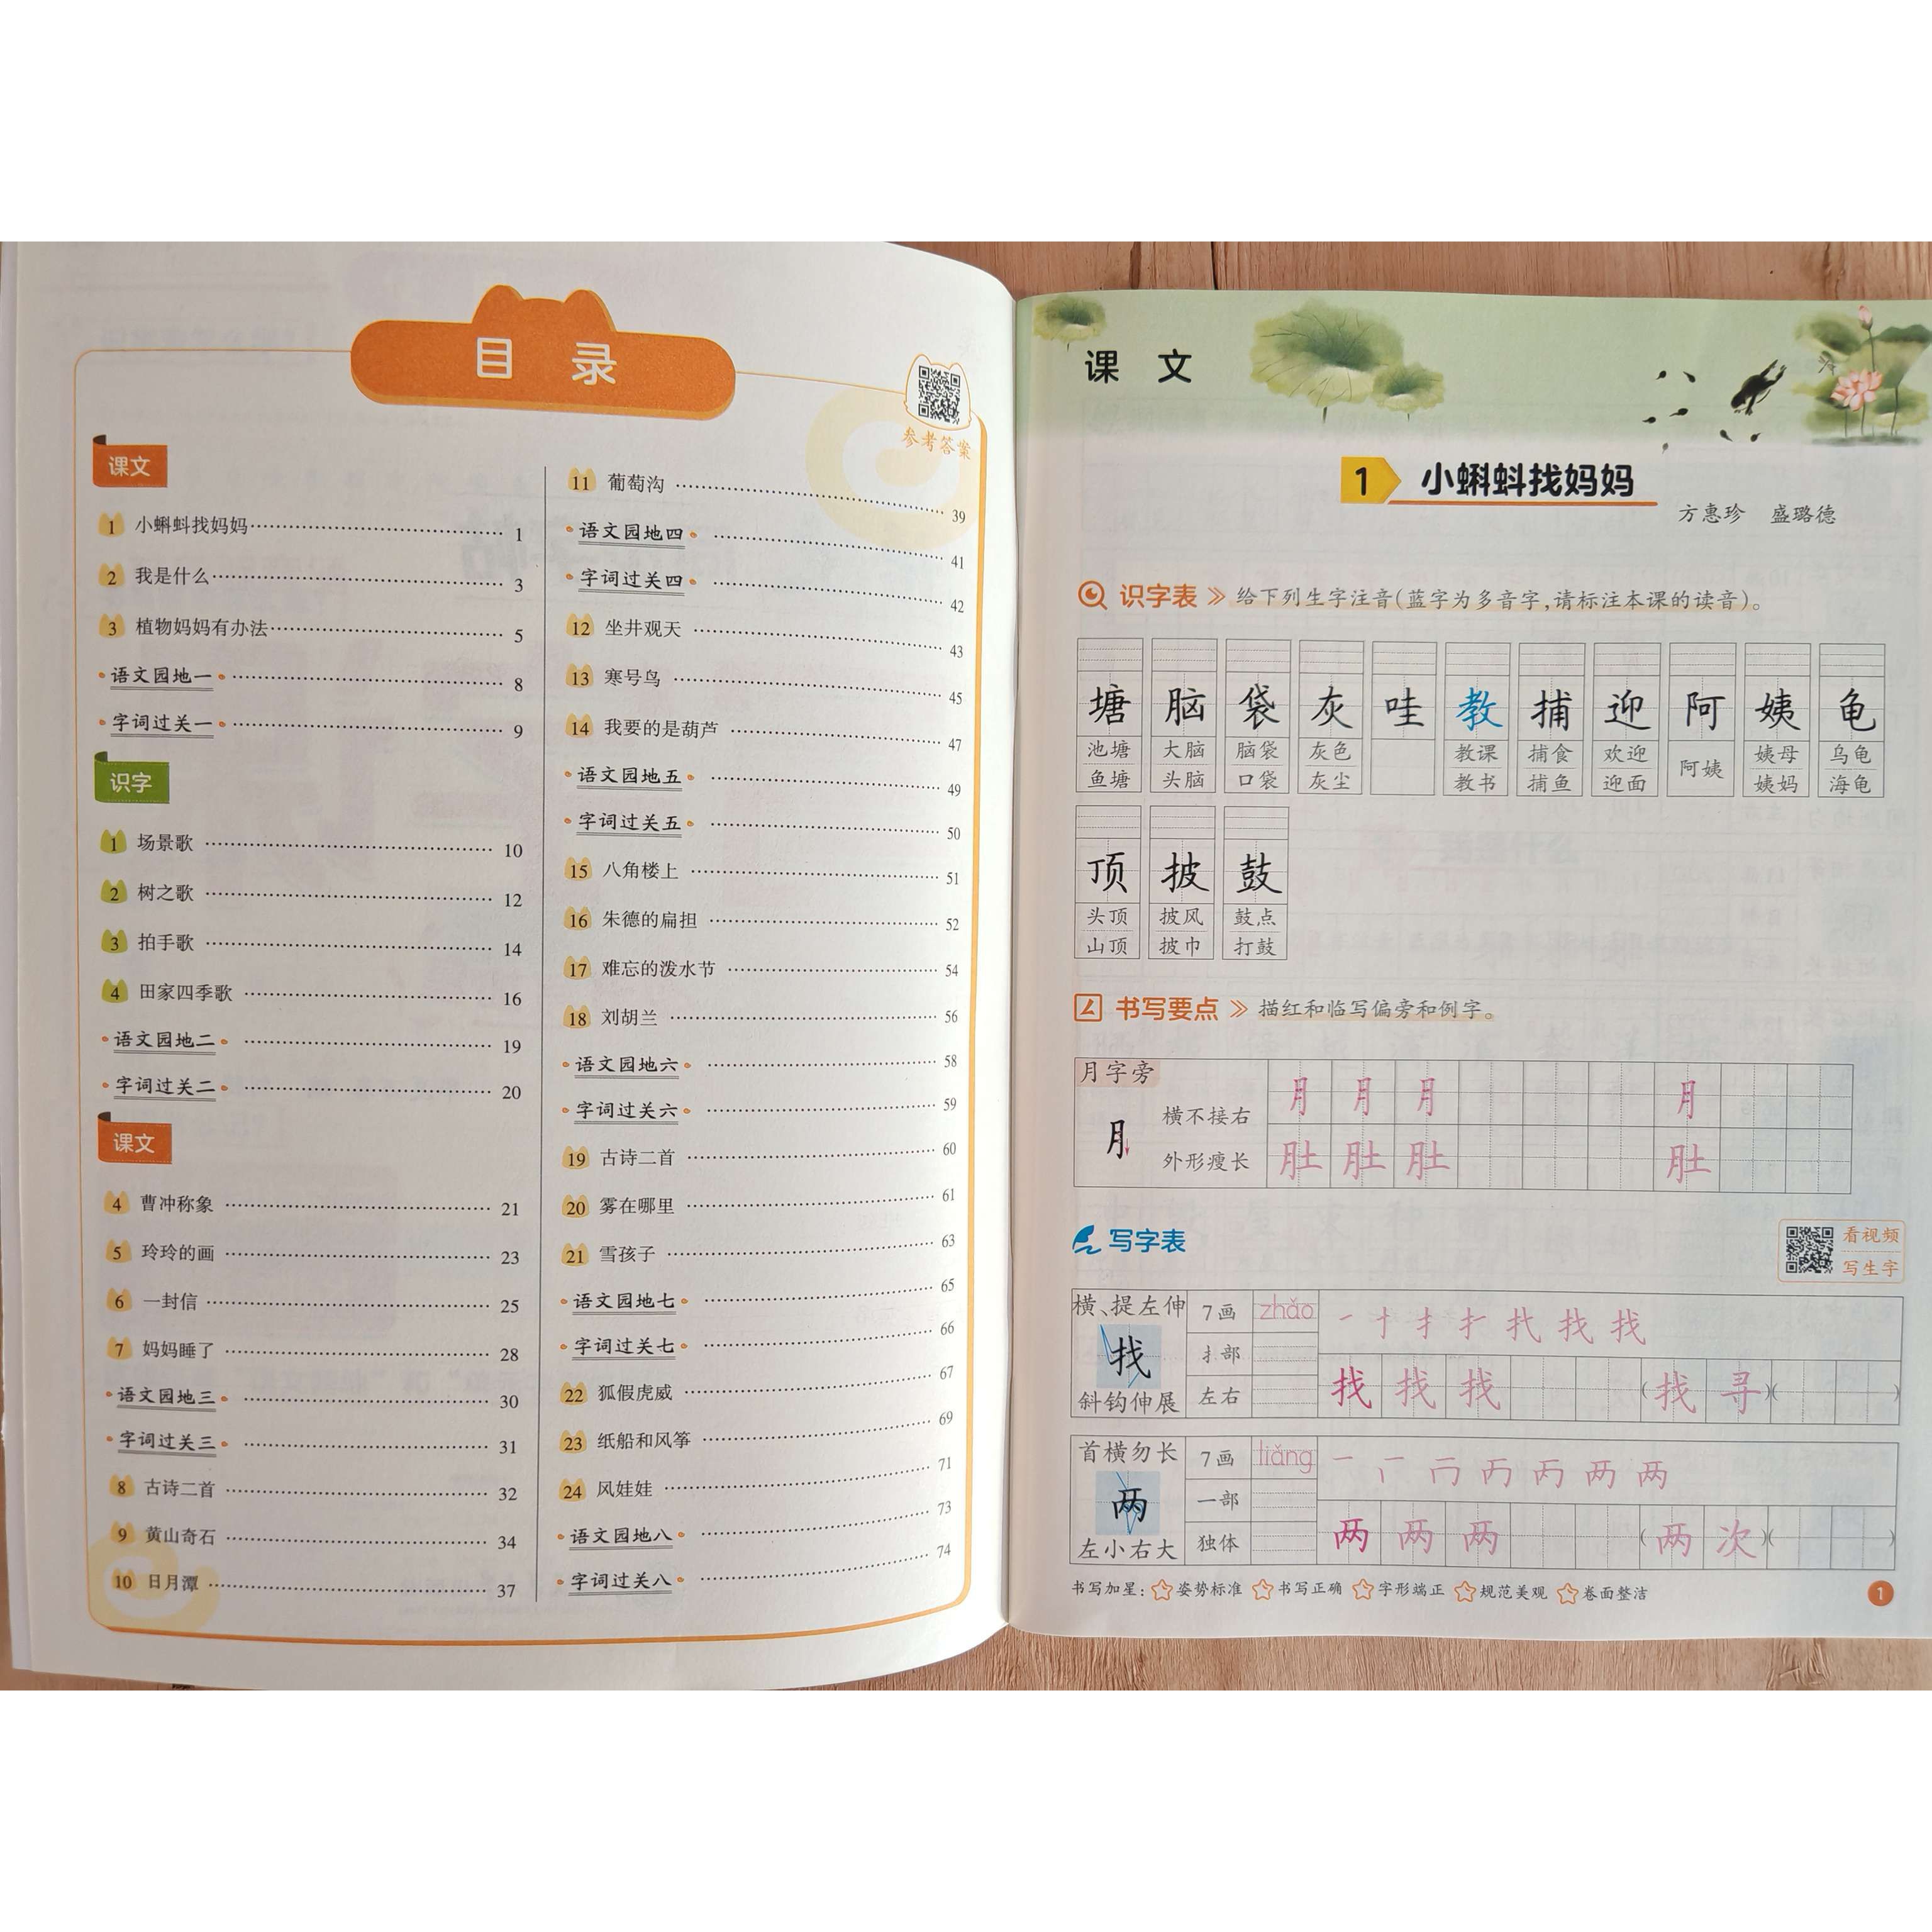 目 录
参考答案
课文
1 小蝌蚪找妈妈 1
2 我是什么 3
3 植物妈妈有办法 5
语文园地一 8
字词过关一 9
识字
1 场景歌 10
2 树之歌 12
3 拍手歌 14
4 田家四季歌 16
语文园地二 19
字词过关二 20
课文
4 曹冲称象 21
5 玲玲的画 23
6 一封信 25
7 妈妈睡了 28
语文园地三 30
字词过关三 31
8 古诗二首 32
9 黄山奇石 34
10 日月潭 37
11 葡萄沟 39
语文园地四 41
字词过关四 42
12 坐井观天 43
13 寒号鸟 45
14 我要的是葫芦 47
语文园地五 49
字词过关五 50
15 八角楼上 51
16 朱德的扁担 52
17 难忘的泼水节 54
18 刘胡兰 56
语文园地六 58
字词过关六 59
19 古诗二首 60
20 雾在哪里 61
21 雪孩子 63
语文园地七 65
字词过关七 66
22 狐假虎威 67
23 纸船和风筝 69
24 风娃娃 71
语文园地八 73
字词过关八 74
课 文
1 小蝌蚪找妈妈
方惠珍 盛璐德
识字表 给下列生字注音(蓝字为多音字,请标注本课的读音)。
塘 脑 袋 灰 哇 教 捕 迎 阿 姨 龟
池塘 大脑 脑袋 灰色 教课 捕食 欢迎 阿姨 姨母 乌龟
鱼塘 头脑 口袋 灰尘 教书 捕鱼 迎面 姨妈 海龟
顶 披 鼓
头顶 披风 鼓点
山顶 披巾 打鼓
书写要点 描红和临写偏旁和例字。
月字旁
月 横不接右 月 月 月 月
外形瘦长 肚 肚 肚 肚
写字表
看视频
写生字
横、提左伸 7画 zhǎo 一 十 扌 扌 扎 找 找
找 扌部
斜钩伸展 左右 找 找 找 (找 寻)( )
首横勿长 7画 liǎng 一 厂 冂 丙 丙 两 两
两 一部
左小右大 独体 两 两 两 (两 次)( )
书写加星: 姿势标准 书写正确 字形端正 规范美观 卷面整洁
1